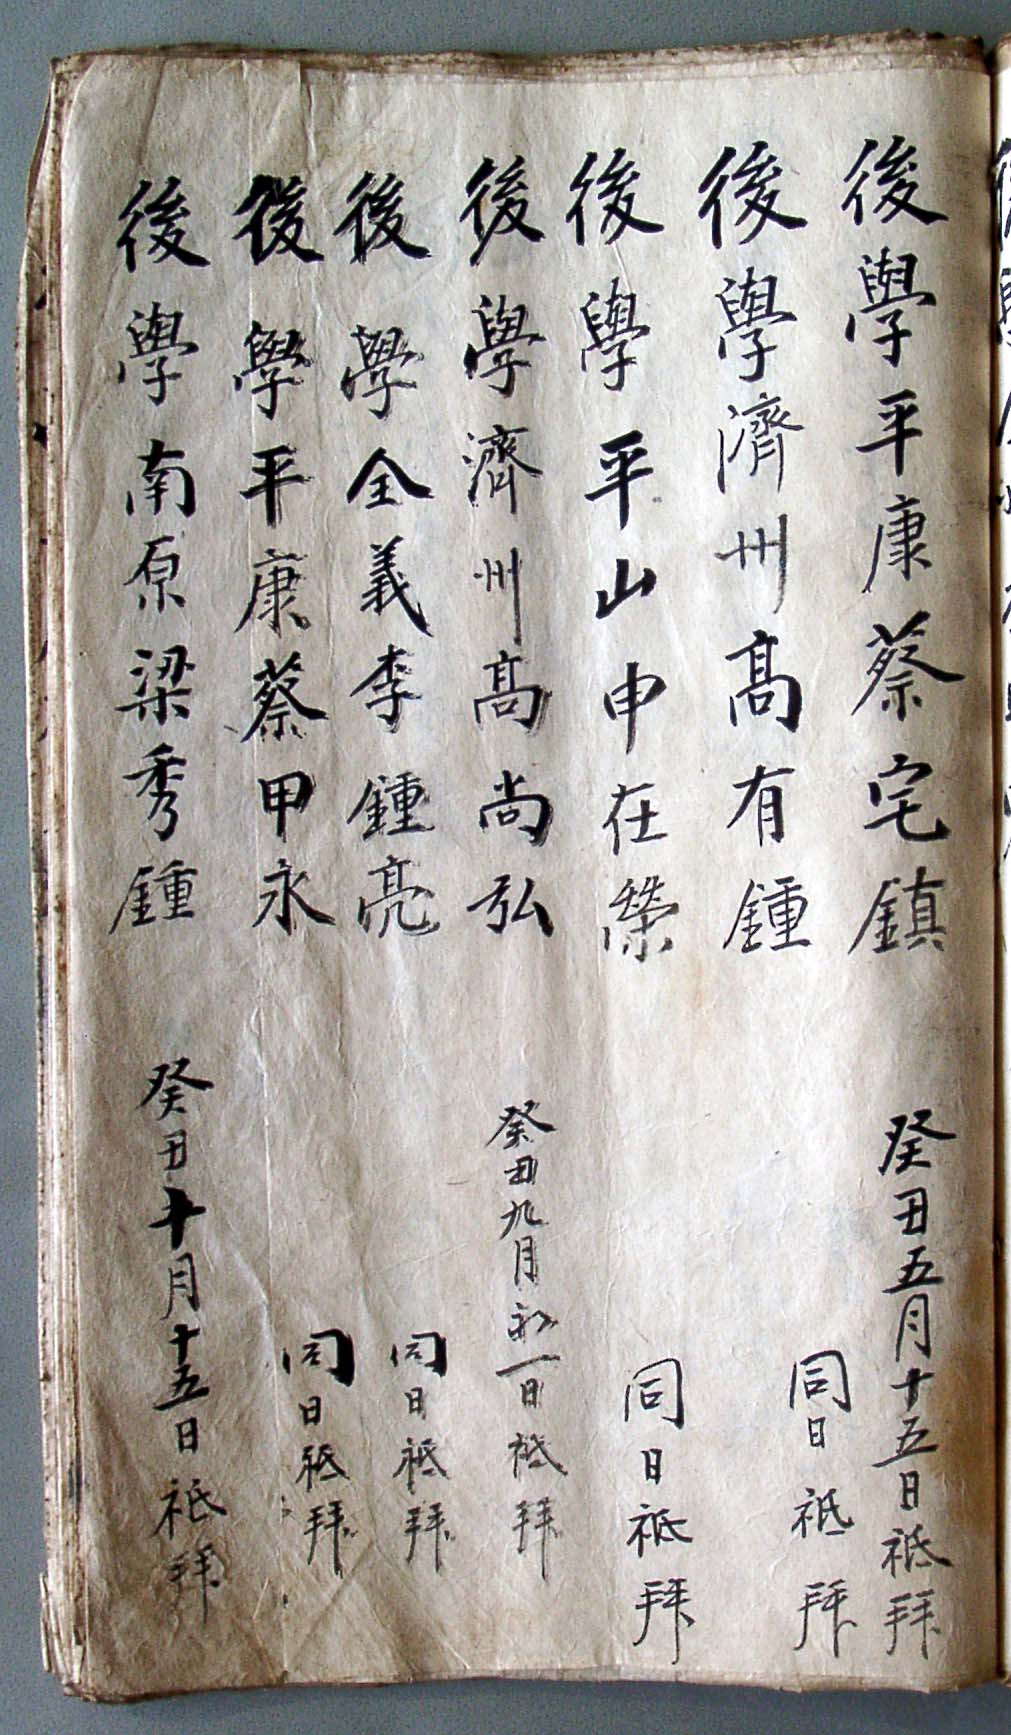 後學平康蔡宅鎮 癸丑五月十五日祗拜
後學濟州高有鍾 同日祗拜
後學平山申在榮 同日祗拜
後學濟州高尚弘 癸丑九月初一日祗拜
後學全義李鍾亮 同日祗拜
後學平康蔡甲永 同日祗拜
後學南原梁秀鍾 癸丑十月十五日祗拜